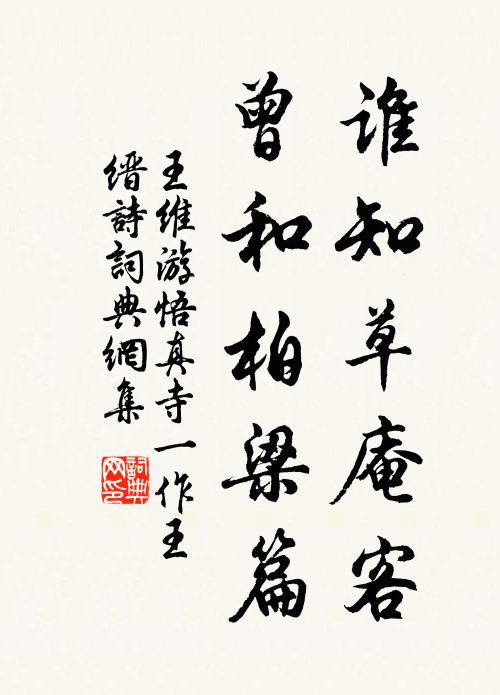 誰知草庵客
曾和柏梁篇
王維游悟真寺一作王
縉詩詞典網集
詞典
网印